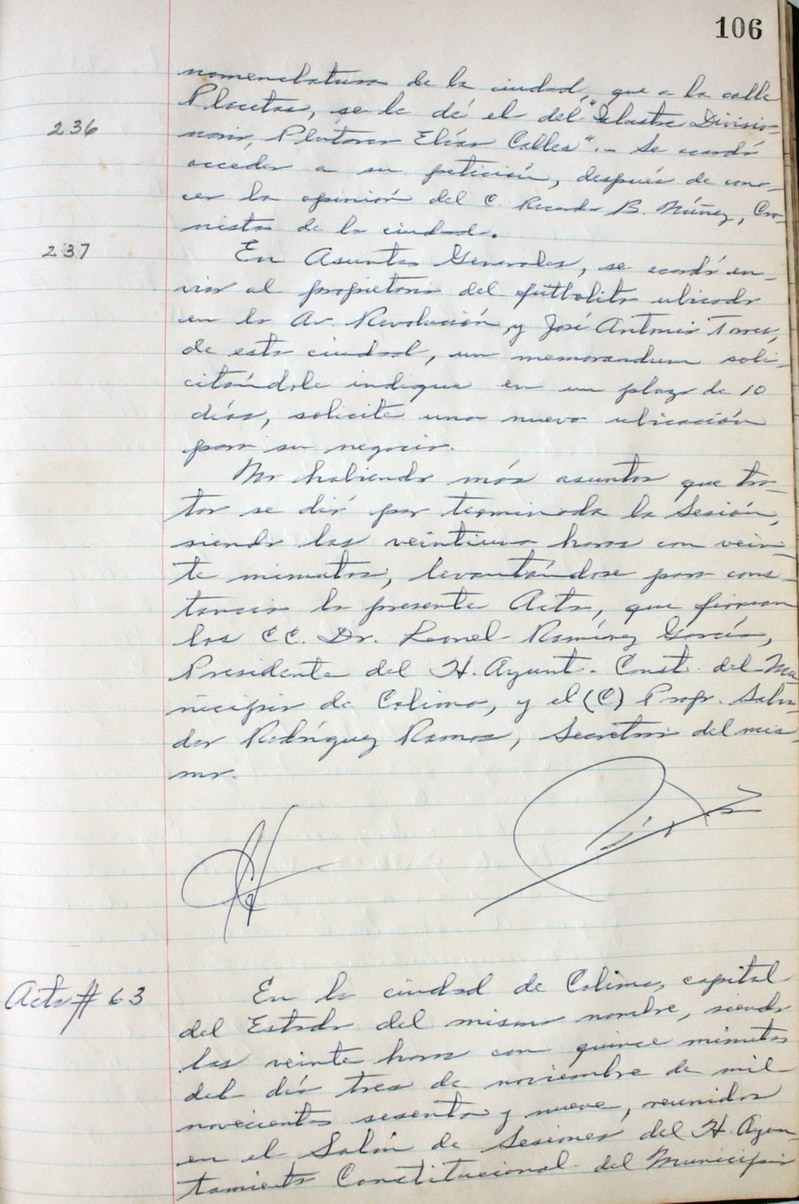 106
nomenclatura de la ciudad, que a la calle
Placetas, se le dé el del "Ilustre Divisio-
236
nario, Plutarco Elías Calles".- Se acordó
acceder a su petición, después de cono-
cer la opinión del C. Ricardo B. Núñez, Cro-
nista de la ciudad.
237
En Asuntos Generales, se acordó en-
viar al propietario del futbolito ubicado
en la Av. Revolución y José Antonio Torres,
de esta ciudad, un memorandum soli-
citándole indique en un plazo de 10
días, solicite una nueva ubicación
para su negocio.
No habiendo más asuntos que tra-
tar se dió por terminada la Sesión,
siendo las veintiuna horas con vein-
te minutos, levantándose para cons-
tancia la presente Acta, que firman
los CC. Dr. Leonel Ramírez García,
Presidente del H. Ayunt. Const. del Mu-
nicipio de Colima, y el (C) Profr. Salva-
dor Rodríguez Ramos, Secretario del mis-
mo.
Acta # 63
En la ciudad de Colima, capital
del Estado del mismo nombre, siendo
las veinte horas con quince minutos
del día tres de noviembre de mil
novecientos sesenta y nueve, reunidos
en el Salón de Sesiones del H. Ayun-
tamiento Constitucional del Municipio